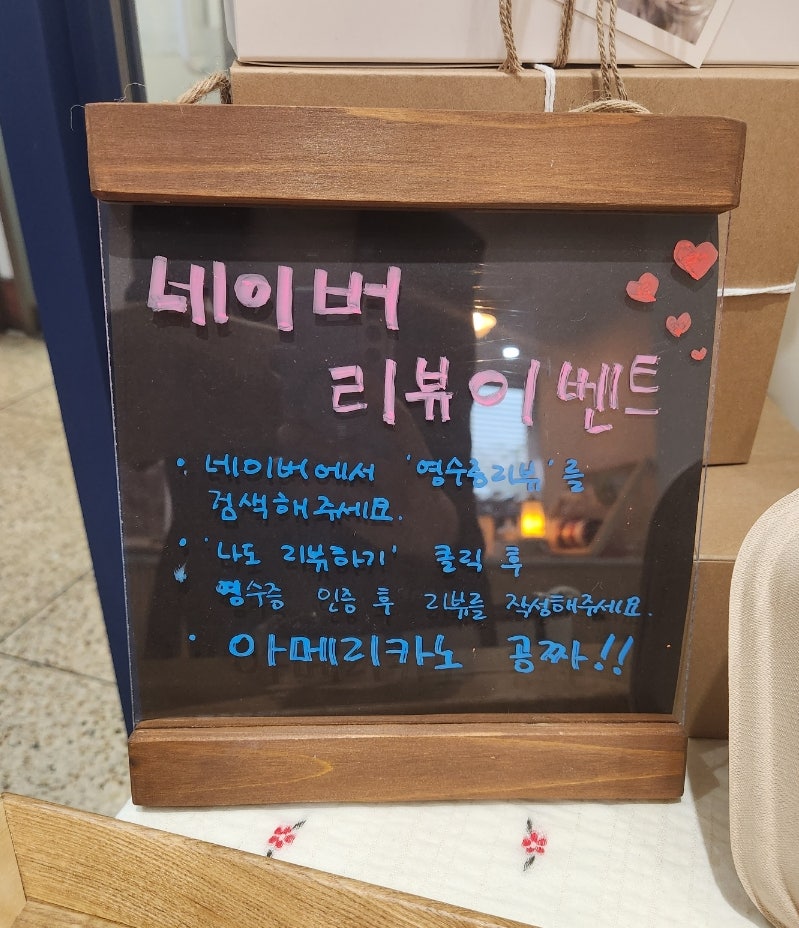 네이버
리뷰이벤트
• 네이버에서 '영수증리뷰'를
검색해주세요.
• '나도 리뷰하기' 클릭 후
영수증 인증 후 리뷰를 작성해주세요.
• 아메리카노 공짜!!